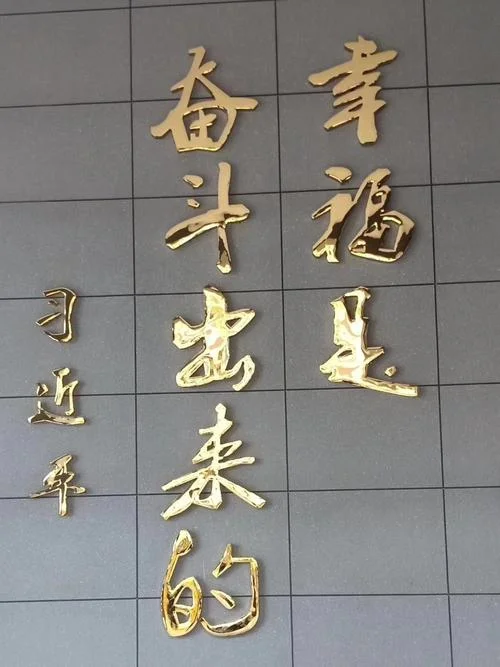 幸福是
奋斗出来的
习近平